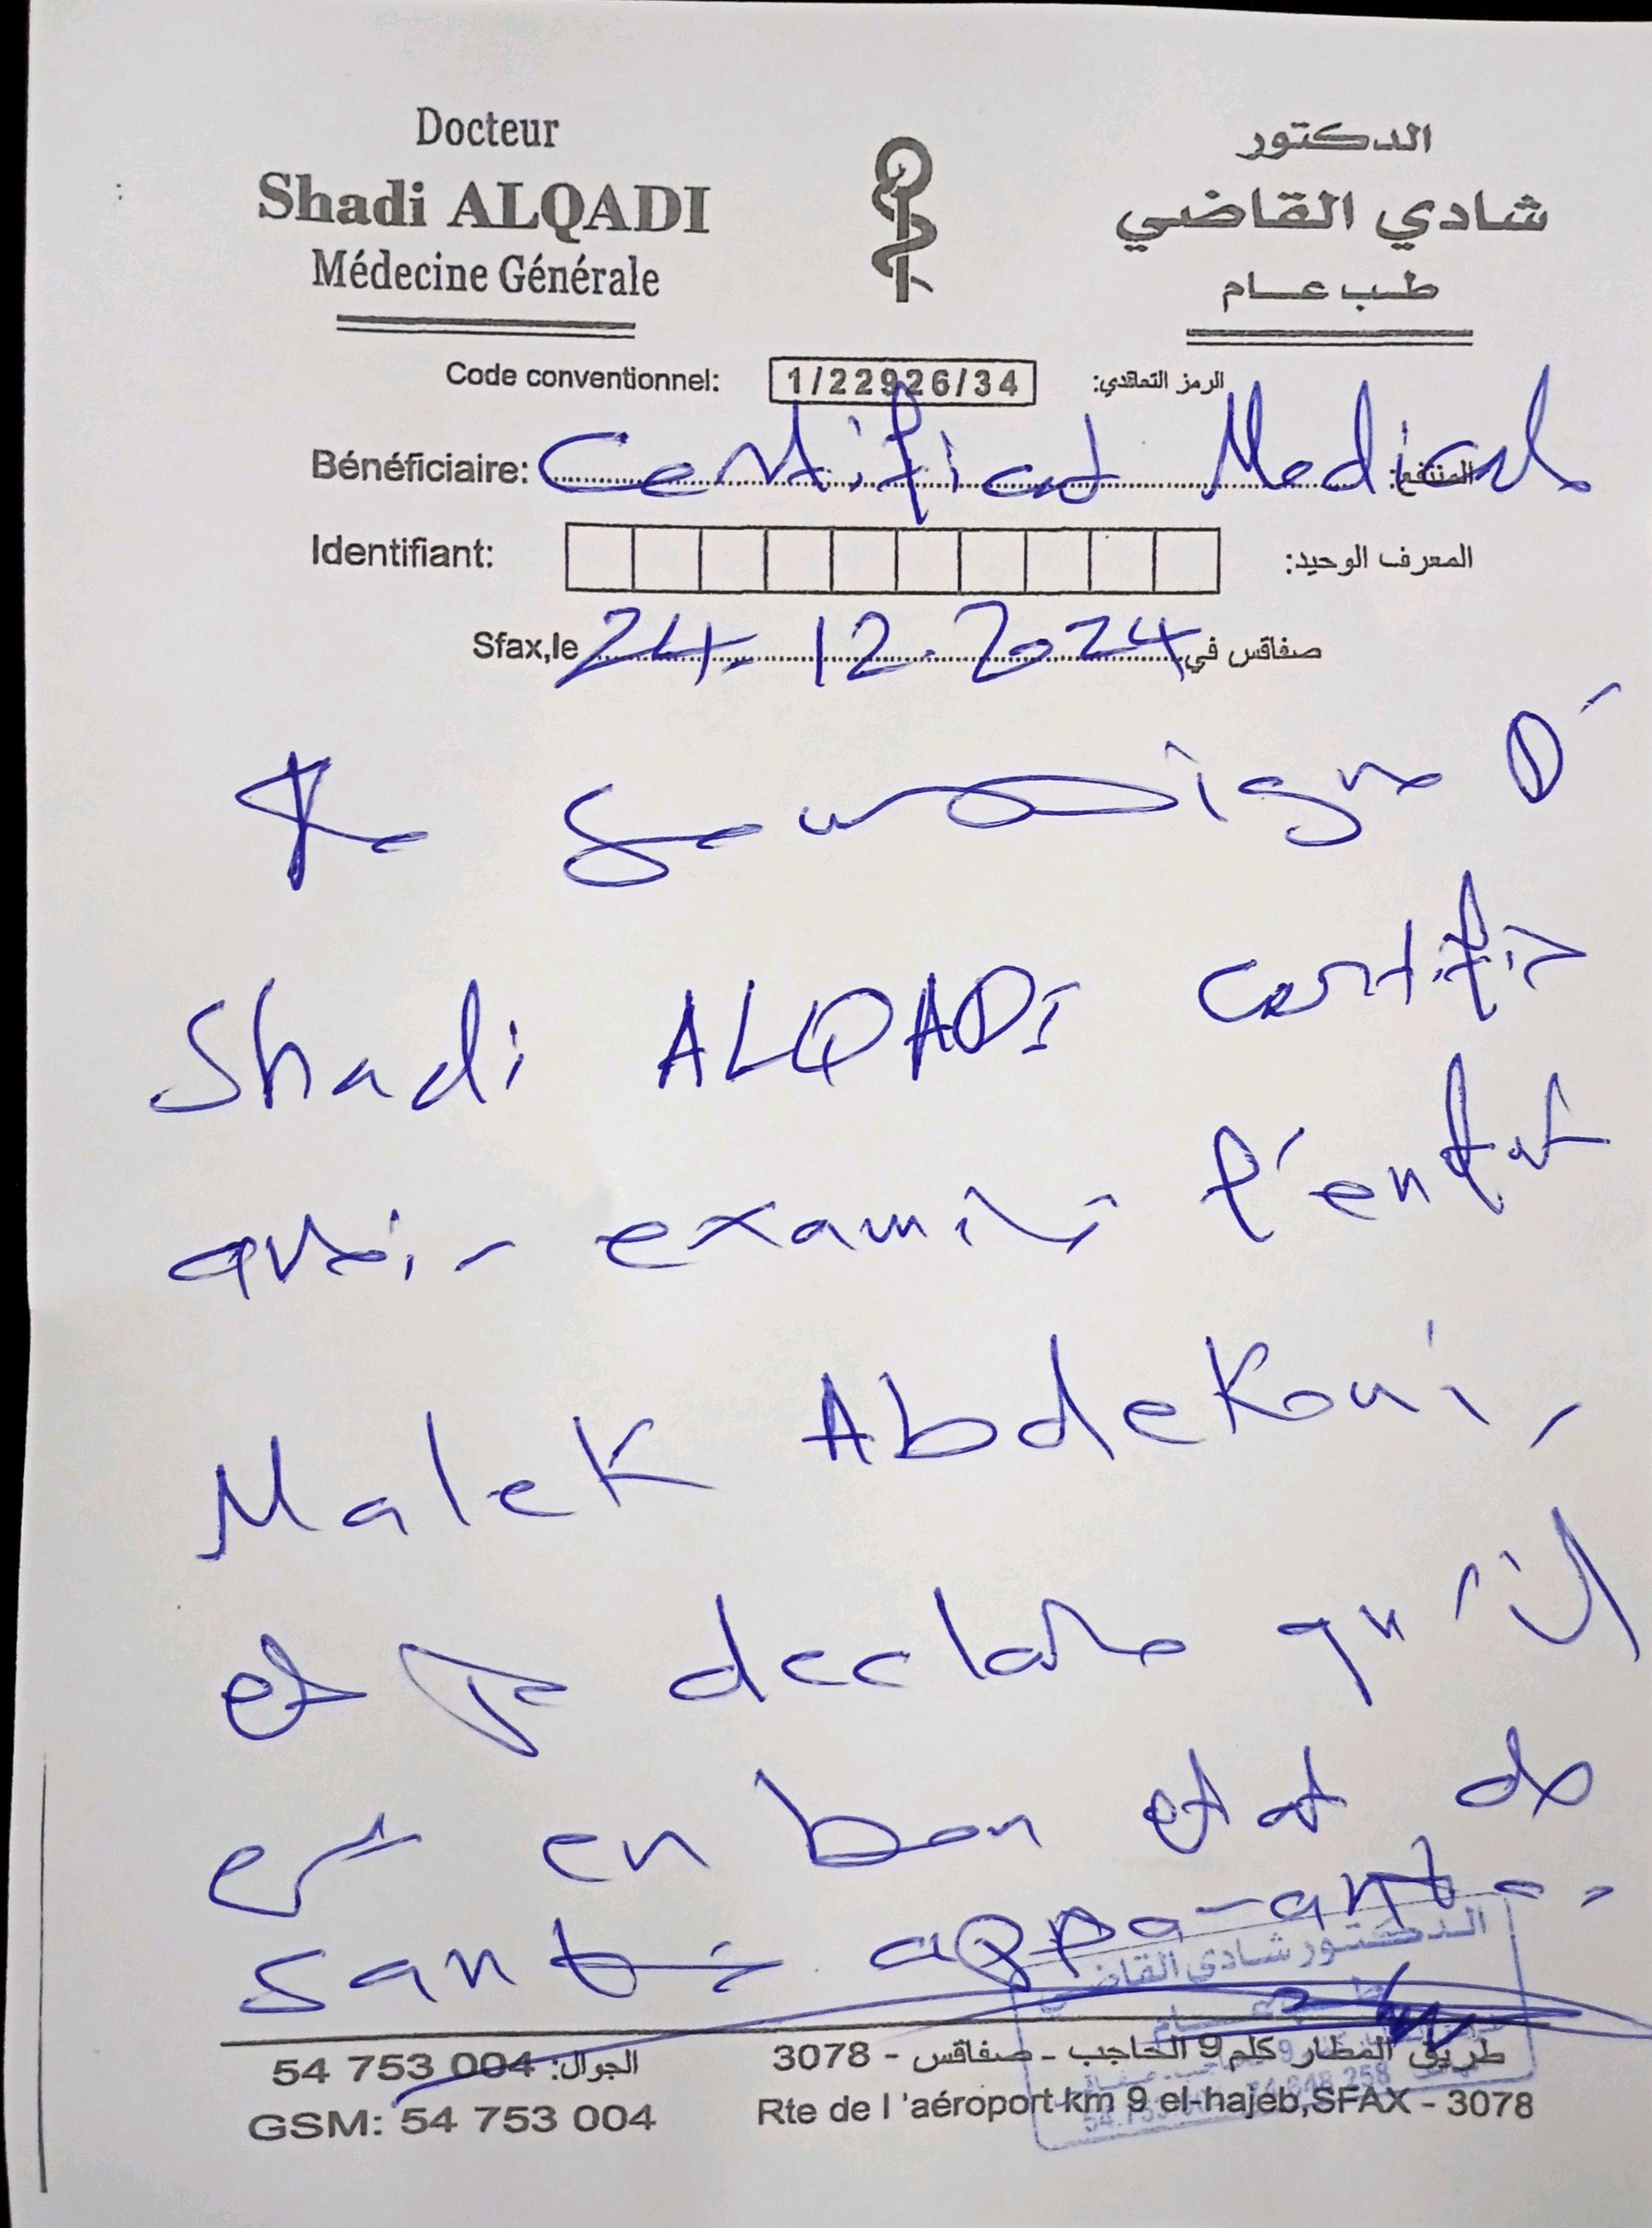 Docteur
Shadi ALQADI
Médecine Générale
الدكتور
شادي القاضي
طب عام
Code conventionnel: 1/22926/34 الرمز التعاقدي:
Bénéficiaire: Certificat Medical المنتفع:
Identifiant: المعرف الوحيد:
Sfax,le 24. 12. 2024 صفاقس في
Je soussigne Dr
Shadi ALQADI certifie
avoir examiné l'enfant
Malek Abdekoui
et je declare qu'il
est en bon etat de
santé apparante.
الدكتور شادي القاضي
طب عام
الجوال: 54 753 004
طريق المطار كلم 9 الحاجب - صفاقس - 3078
GSM: 54 753 004
Rte de l'aéroport km 9 el-hajeb,SFAX - 3078